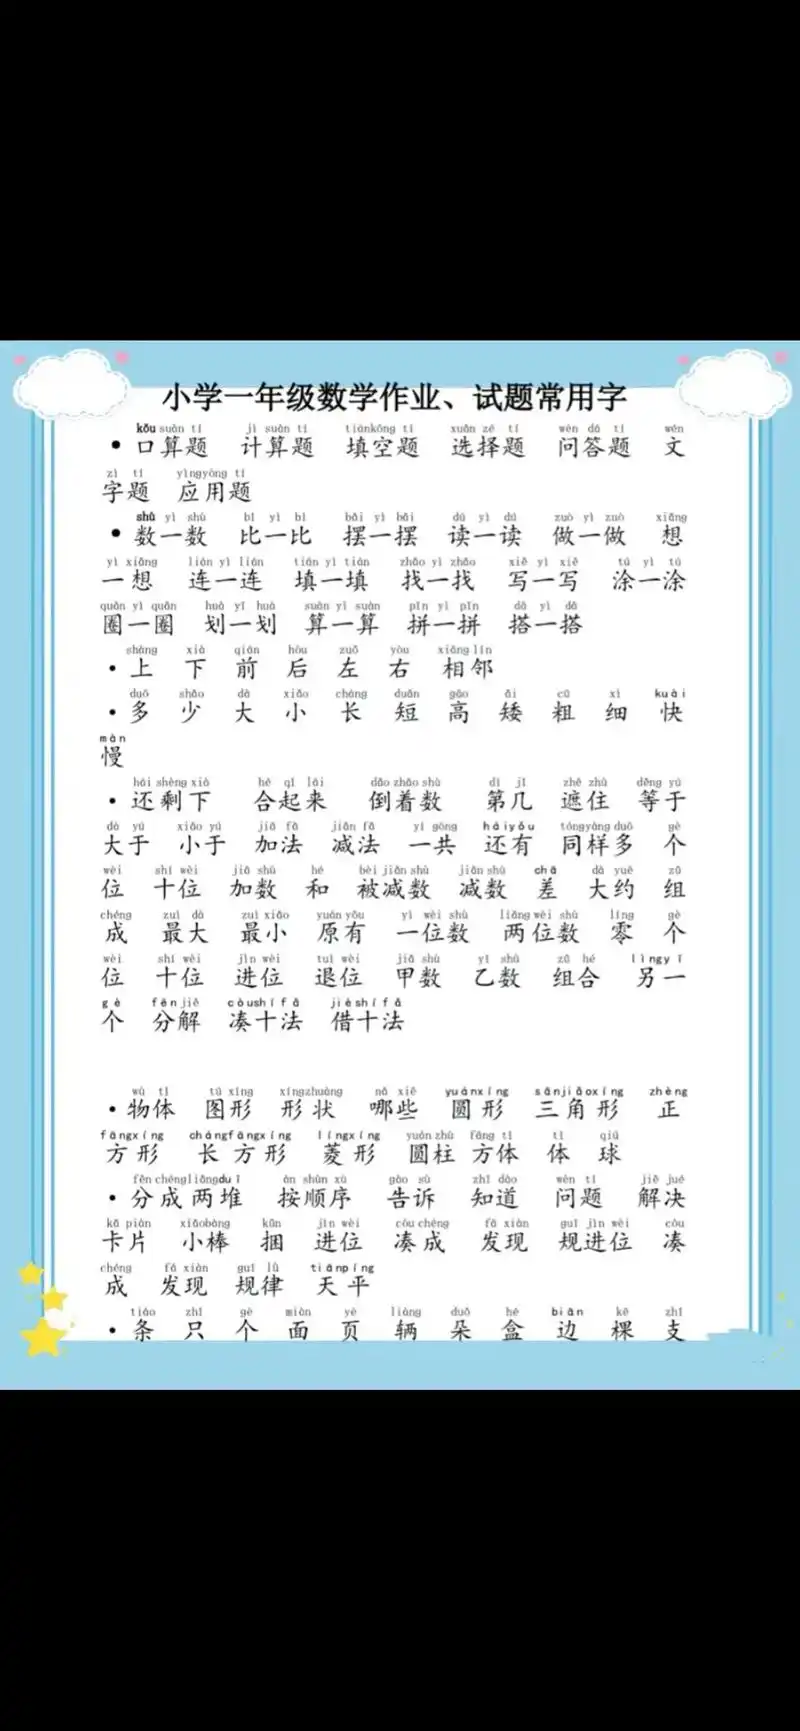 小学一年级数学作业、试题常用字
kǒu suàn tí jì suàn tí tiánkōng tí xuǎn zé tí wèn dá tí wén
• 口算题 计算题 填空题 选择题 问答题 文
zì tí yìngyòng tí
字题 应用题
shǔ yì shǔ bǐ yì bǐ bǎi yì bǎi dú yì dú zuò yì zuò xiǎng
• 数一数 比一比 摆一摆 读一读 做一做 想
yì xiǎng lián yì lián tián yì tián zhǎo yì zhǎo xiě yì xiě tú yì tú
一想 连一连 填一填 找一找 写一写 涂一涂
quān yì quān huà yī huà suàn yì suàn pīn yì pīn dā yì dā
圈一圈 划一划 算一算 拼一拼 搭一搭
shàng xià qián hòu zuǒ yòu xiāng lín
• 上 下 前 后 左 右 相邻
duō shǎo dà xiǎo cháng duǎn gāo ǎi cū xì kuài
• 多 少 大 小 长 短 高 矮 粗 细 快
màn
慢
hái shèng xià hé qǐ lái dào zháo shù dì jǐ zhē zhù děng yú
• 还剩下 合起来 倒着数 第几 遮住 等于
dà yú xiǎo yú jiā fǎ jiǎn fǎ yí gòng háiyǒu tóngyàng duō gè
大于 小于 加法 减法 一共 还有 同样多 个
wèi shí wèi jiā shù hé bèi jiǎn shù jiǎn shù chā dà yuē zǔ
位 十位 加数 和 被减数 减数 差 大约 组
chéng zuì dà zuì xiǎo yuán yǒu yì wèi shù liǎng wèi shù líng gè
成 最大 最小 原有 一位数 两位数 零 个
wèi shí wèi jìn wèi tuì wèi jiǎ shù yǐ shù zǔ hé lìngyī
位 十位 进位 退位 甲数 乙数 组合 另一
gè fēn jiě còushífǎ jièshífǎ
个 分解 凑十法 借十法
wù tǐ tú xíng xíngzhuàng nǎ xiē yuánxíng sānjiǎoxíng zhèng
• 物体 图形 形状 哪些 圆形 三角形 正
fāngxíng chángfāngxíng língxíng yuán zhù fāng tǐ tǐ qiú
方形 长方形 菱形 圆柱 方体 体 球
fēn chéngliǎngduī àn shùn xù gào sù zhī dào wèn tí jiě jué
• 分成两堆 按顺序 告诉 知道 问题 解决
kǎ piàn xiǎobàng kǔn jìn wèi còu chéng fā xiàn guī jìn wèi còu
卡片 小棒 捆 进位 凑成 发现 规进位 凑
chéng fā xiàn guī lǜ tiānpíng
成 发现 规律 天平
tiáo zhī gè miàn yè liàng duǒ hé biān kē zhī
• 条 只 个 面 页 辆 朵 盒 边 棵 支